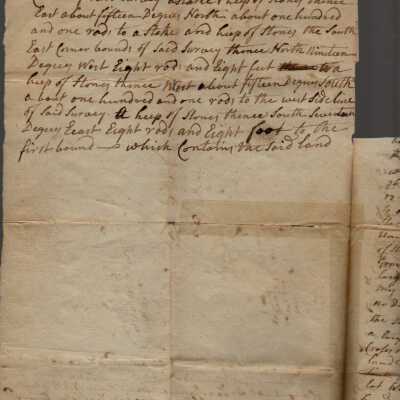 of said Survey a Stake & heep of Stones thence
East about fifteen Degrees North about one hundred
and one rods to a Stake and heep of Stones the South
East Corner bounds of Said Survey thence North Ninteen
Degrees West Eight rods and Eight feet to a
heep of Stones thence West about fifteen Degrees South
about one hundred and one rods to the west Side line
of Said Survey A heep of Stones thence South Seventeen
Degrees Eeast Eight rods and Eight foot to the
first bound — which Contains the Said land
of th
my
no D
the S
a larg
land
lot W